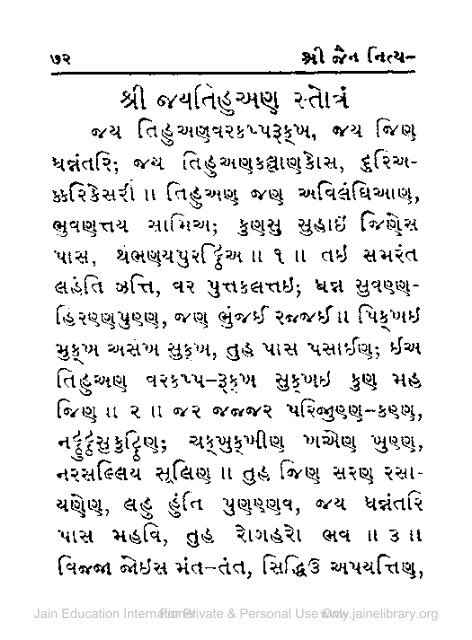 ૭૨ શ્રી જૈન નિત્ય-
શ્રી જયતિહુઅણ સ્તોત્રં
જય તિહુઅણવરકપ્પરૂક્ખ, જય જિણ
ધન્નંતરિ; જય તિહુઅણકલ્લાણકોસ, દુરિઅ-
ક્કરિકેસરી ॥ તિહુઅણ જણ અવિલંઘિઆણ,
ભુવણત્તય સામિઅ; કુણસુ સુહાઇં જિણેસ
પાસ, થંભણયપુરટ્ઠિઅ ॥ ૧ ॥ તઇ સમરંત
લહંતિ ઝત્તિ, વર પુત્તકલત્તઇ; ધન્ન સુવણ્ણ-
હિરણ્ણપુણ્ણ, જણ ભુંજઈ રજ્જઈ ॥ પિક્ખઇ
મુક્ખ અસંખ સુક્ખ, તુહ પાસ પસાઈણ; ઈઅ
તિહુઅણ વરકપ્પ-રૂક્ખ સુક્ખઇ કુણ મહ
જિણ ॥ ૨ ॥ જર જજ્જર પરિજુણ્ણ-કણ્ણ,
નટ્ઠુટ્ઠસુકુટ્ઠિણ; ચક્ખુક્ખીણ ખએણ ખુણ્ણ,
નરસલ્લિય સૂલિણ ॥ તુહ જિણ સરણ રસા-
યણેણ, લહુ હુંતિ પુણણ્ણવ, જય ધન્નંતરિ
પાસ મહવિ, તુહ રોગહરો ભવ ॥ ૩ ॥
વિજ્જા જોઇસ મંત-તંત, સિદ્ધિઉ અપયત્તિણ,
Jain Education International For Private & Personal Use Only www.jainelibrary.org